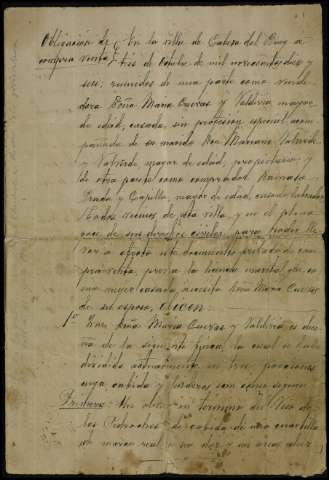 Obligación de En la villa de Cabeza del Buey a
compra venta tres de Octubre de mil novecientos diez y
seis; reunidos de una parte como vende
dora Doña Maria Cuevas y Valdivia, mayor
de edad, casada, sin profesion especial, acom
pañada de su marido Don Mariano Valverde
y Valverde, mayor de edad, propietario, y
de otra parte como comprador
y Capilla, mayor de edad, casado, labrador
todos vecinos de esta villa y en el pleno
goce de sus derechos civiles para poder lle
var a efecto este documento privado de com
pra venta, previa la licencia marital que co
mo mujer casada, necesita Doña Maria Cuevas
de su esposo, dicen:
1º Que Doña Maria Cuevas y Valdivia es due
ña de la siguiente finca, la cual se halla
dividida actualmente en tres porciones
cuya cabida y linderos son como siguen
Primera: Un en termino del
de los Pedroches de cabida de una cuartilla
de marco real o sea diez y seis areas